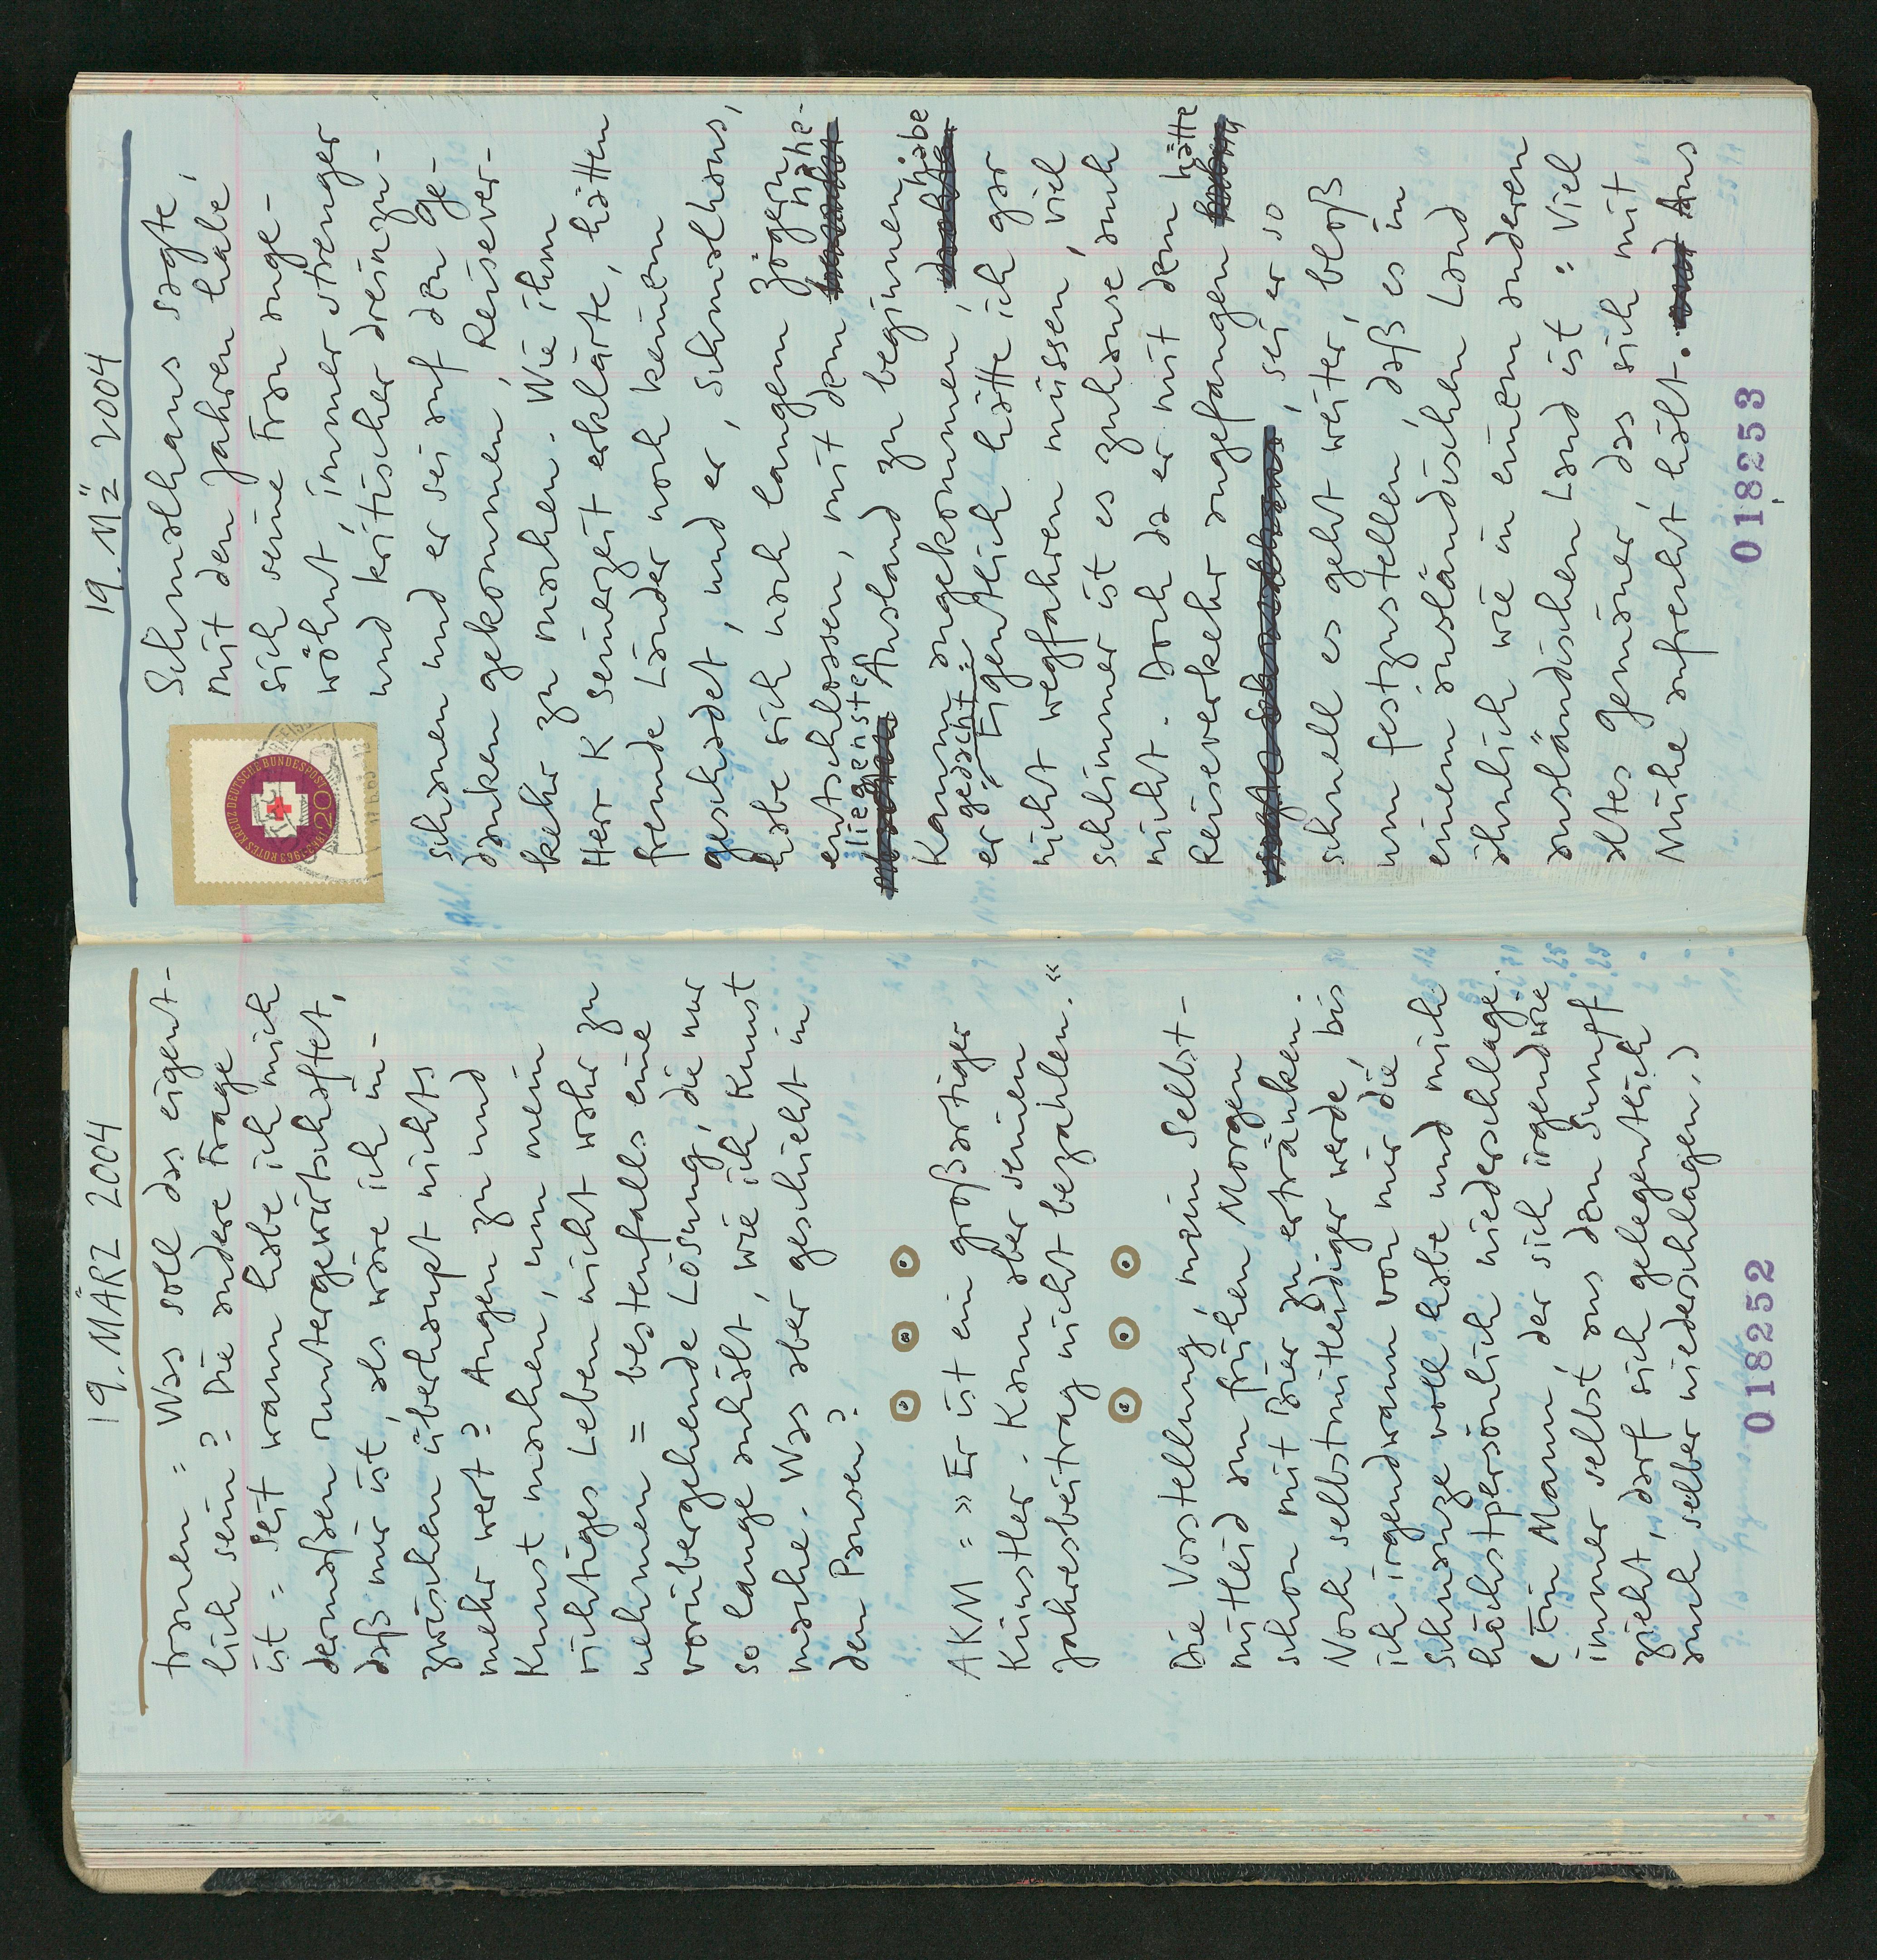 19. MÄRZ 2004
trauen : Was soll das eigent-
lich sein? Die andere Frage
ist : seit wann habe ich mich
dermaßen runtergewirtschaftet,
daß mir ist, als wäre ich in-
zwischen überhaupt nichts
mehr wert? Augen zu und
Kunst machen, um mein
richtiges Leben nicht wahr zu
nehmen = bestenfalls eine
vorübergehende Lösung, die nur
so lange anhält, wie ich Kunst
mache. Was aber geschieht in
den Pausen?
AKM : »Er ist ein großartiger
Künstler. Kann aber seinen
Jahresbeitrag nicht bezahlen.«
Die Vorstellung, mein Selbst-
mitleid am frühen Morgen
schon mit Bier zu ertränken.
Noch selbstmitleidiger werde, bis
ich irgendwann von mir die
Schnauze voll habe und mich
höchstpersönlich niederschlage.
(Ein Mann, der sich irgendwie
immer selbst aus dem Sumpf
zieht, darf sich gelegentlich
auch selber niederschlagen.)
018252
19. MÄZ 2004
Schmalhans sagte,
mit den Jahren habe
sich seine Frau ange-
wöhnt, immer strenger
und kritischer dreinzu-
schauen und er sei auf den Ge-
danken gekommen, Reisever-
kehr zu machen. Wie ihm
Herr K seinerzeit erklärte, hätten
fremde Länder noch keinem
geschadet, und er, Schmalhans,
habe sich nach langem Zögern
entschlossen, mit dem nahe-
liegenste Ausland zu beginnen.
Kaum angekommen, habe
er gedacht :
Eigentlich hätte ich gar
nicht wegfahren müssen, viel
schlimmer ist es zuhause auch
nicht. Doch da er mit dem
Reiseverkehr angefangen hätte
, sei er so
schnell es geht weiter, bloß
um festzustellen, daß es in
einem ausländischen Land
ähnlich wie in einem anderen
ausländischen Land ist : Viel
altes Gemäuer, das sich mit
Mühe aufrecht hält. Aus
018253
DEUTSCHE BUNDESPOST
1863·1963 ROTES KREUZ
20